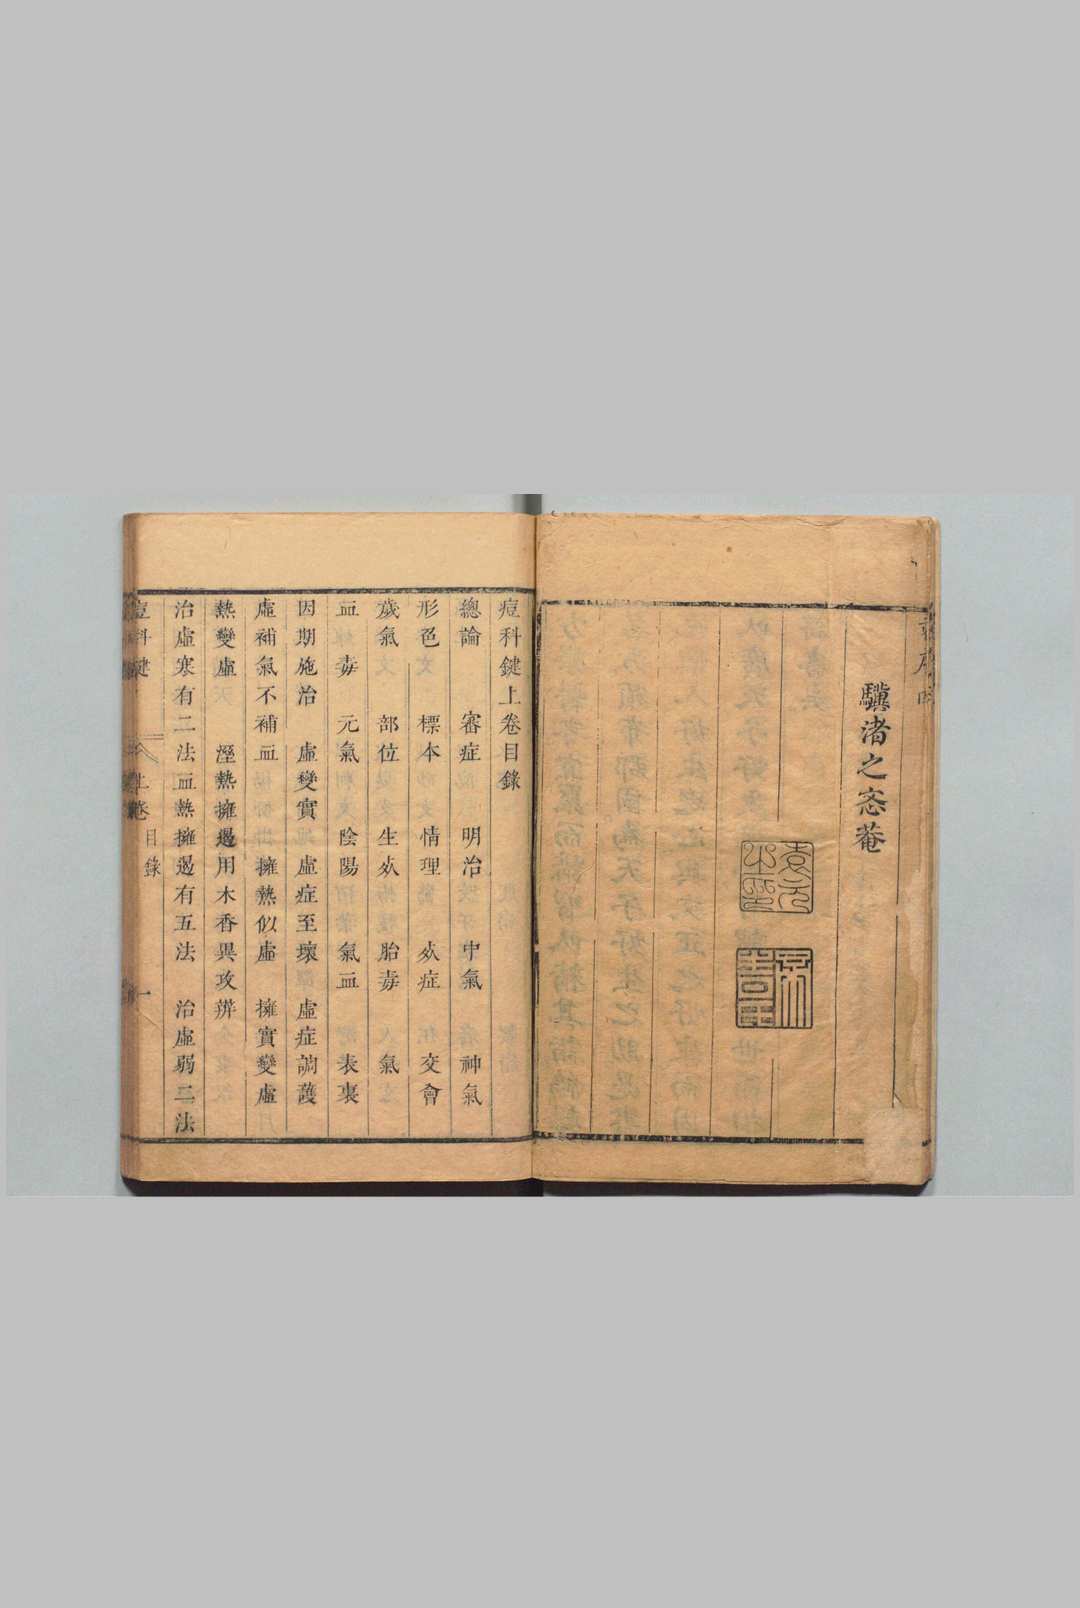 驥渚之恣菴
痘科鍵上卷目錄
總論 審症 明治 中氣 神氣
形色 標本 情理 炏症 交會
歲氣 部位 生炏 胎毒 人氣
血毒 元氣 陰陽 氣血 表裏
因期施治 虛變實 虛症至壞 虛症調護
虛補氣不補血 擁熱似虛 擁實變虛
熱變虛 溼熱擁遏用木香異攻辨
治虛寒有二法 血熱擁遏有五法 治虛弱二法
痘科鍵 上卷 目錄 一